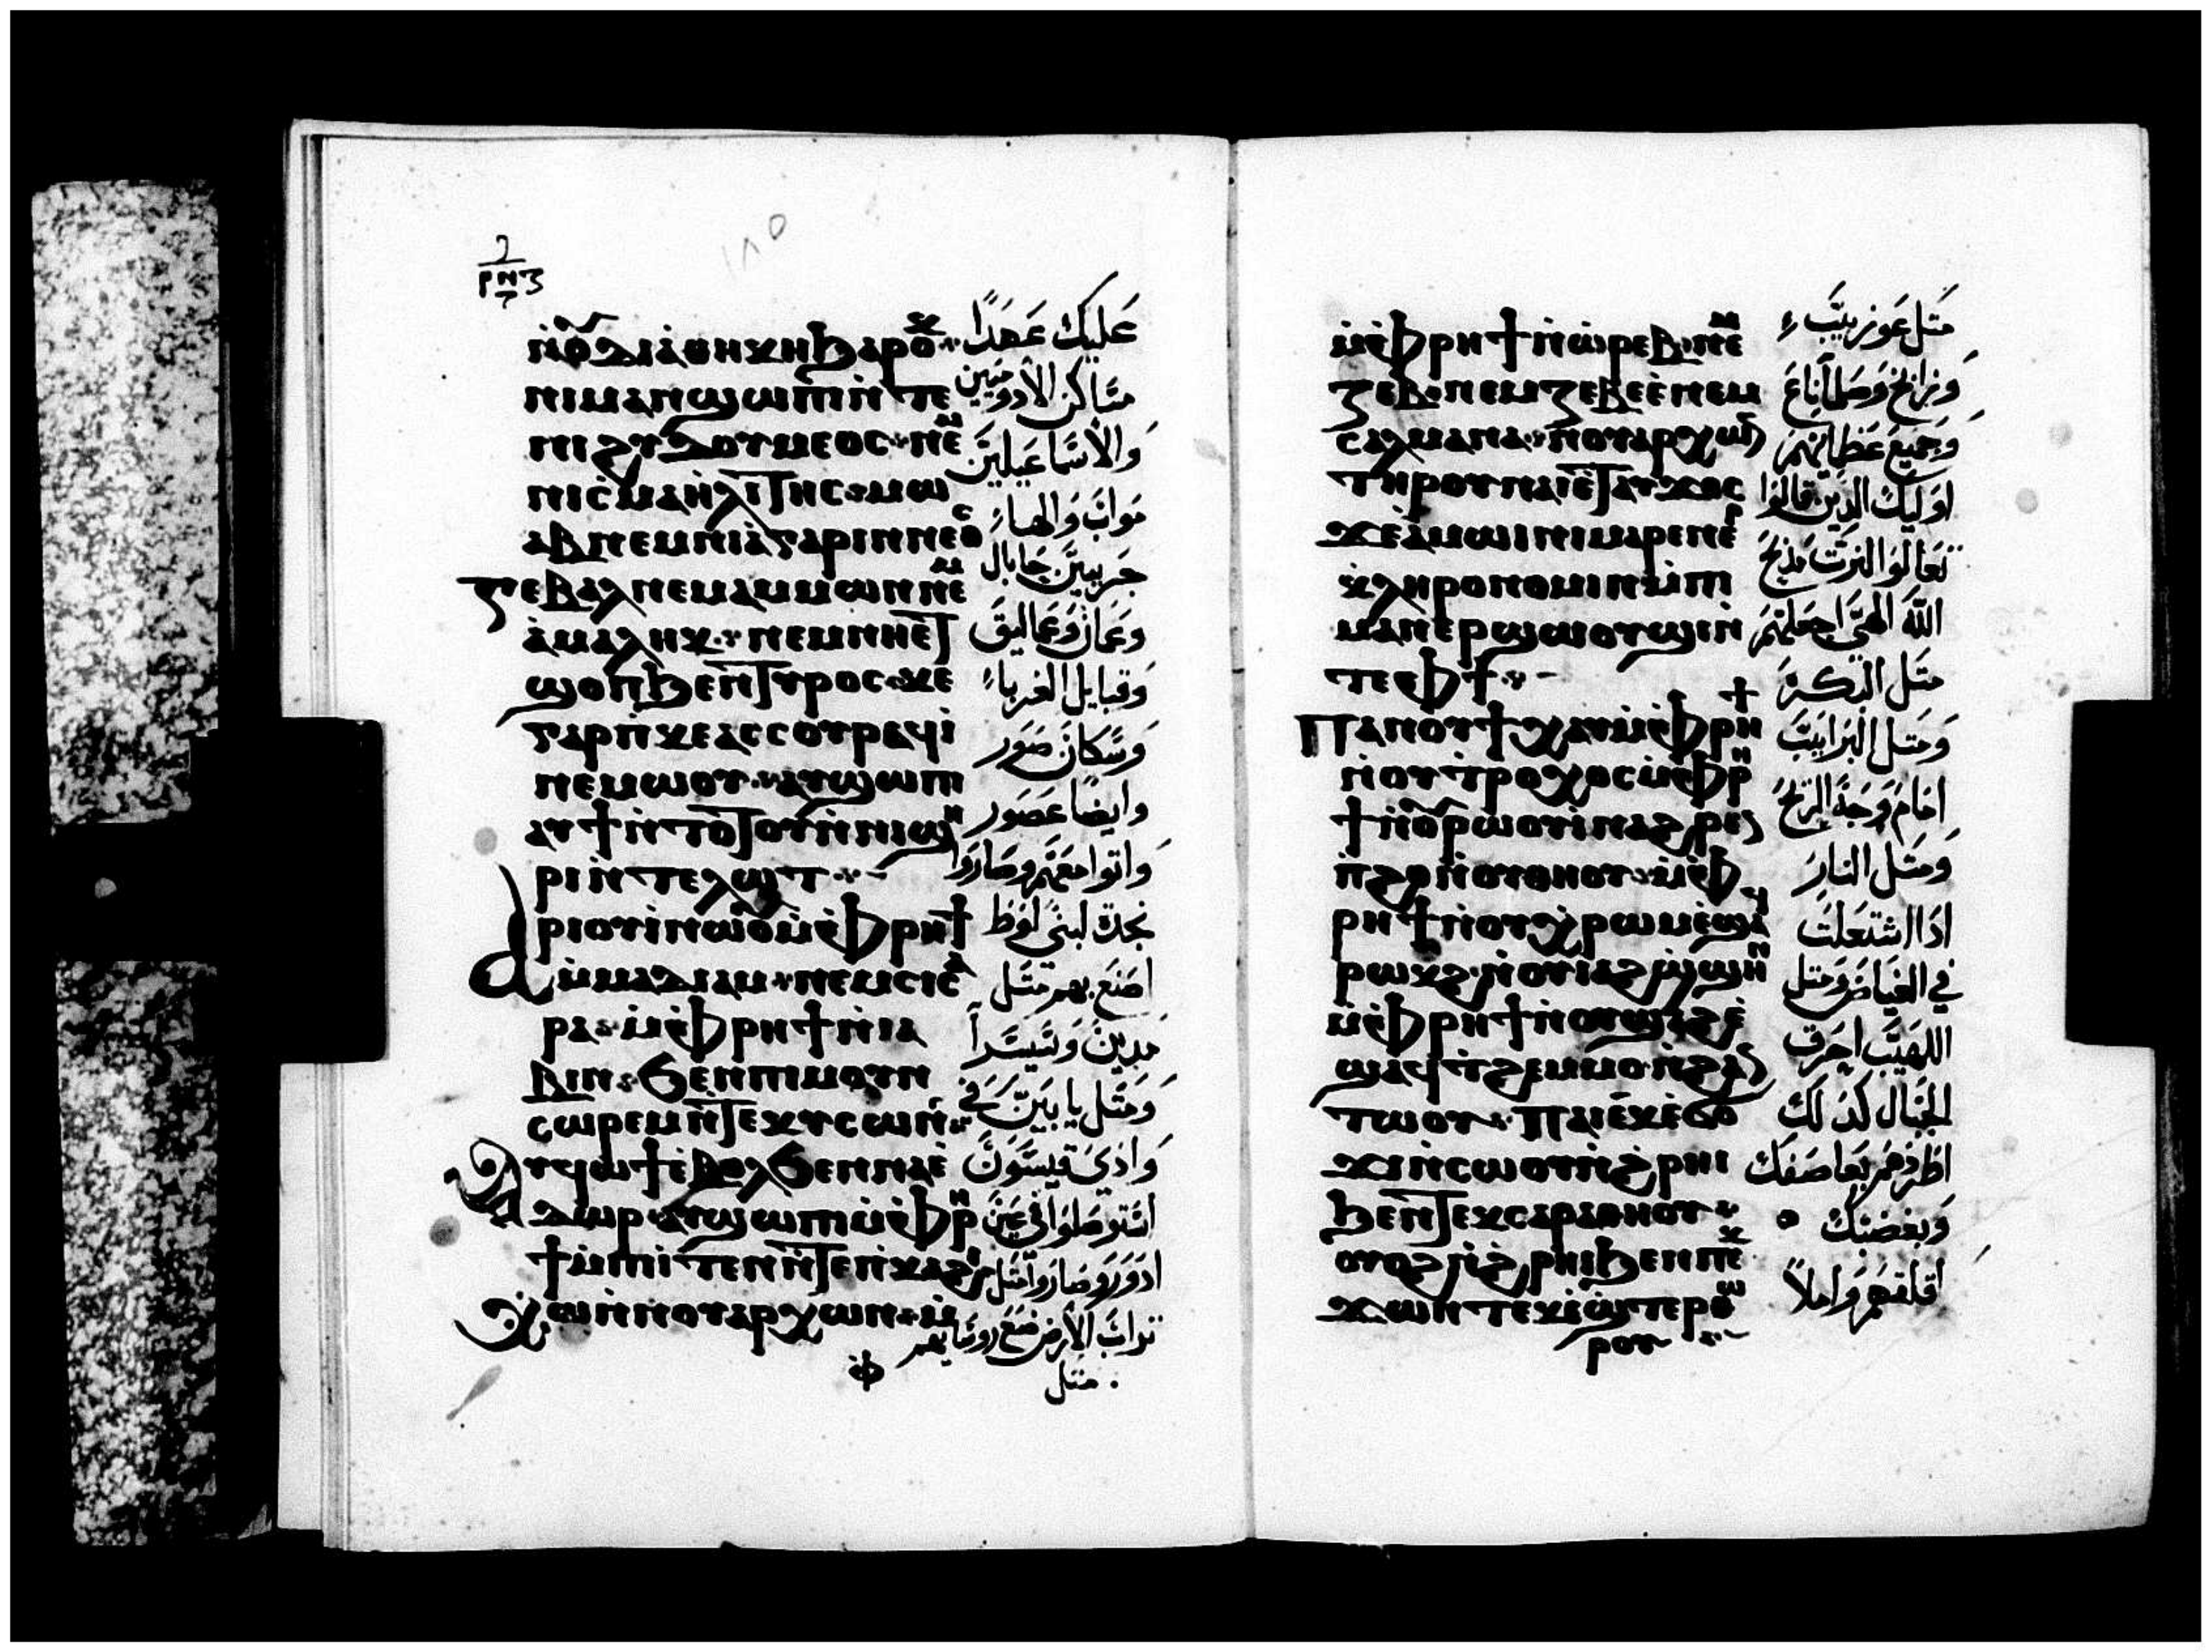 ⲣⲛⲍ
١٨٥
ⲛ̀ⲟⲩⲇⲓⲁ̀ⲑⲏⲕⲏ ϧⲁⲣⲟⲕ
ⲛⲓⲙⲁⲛϣⲱⲡⲓ ⲛ̀ⲧⲉ
ⲛⲓϩⲩⲇⲟⲩⲙⲉⲟⲥ ⲛⲉⲙ
ⲛⲓⲥ̀ⲙⲁⲏ̀ⲗⲓⲧⲏⲥ ⲙⲱ
ⲁⲃ ⲛⲉⲙ ⲛⲓⲁ̀ⲅⲁⲣⲓⲛⲛⲉⲟⲥ
ⲅⲉⲃⲁⲗ ⲛⲉⲙ ⲁⲙⲙⲱⲛ ⲛⲉⲙ
ⲁ̀ⲙⲁⲗⲏⲕ ⲛⲉⲙ ⲛⲏⲉⲧ
ϣⲟⲡ ϧⲉⲛ ⲧⲩⲣⲟⲥ ⲕⲉ
ⲅⲁⲣ ⲡ̀ⲕⲉⲁⲥⲥⲟⲩⲣ ⲁϥⲓ̀
ⲛⲉⲙⲱⲟⲩ ⲁⲩϣⲱⲡⲓ
ⲁⲩϯⲛ̀ⲧⲟⲧⲟⲩ ⲛ̀ⲛⲓϣⲏ
ⲣⲓ ⲛ̀ⲧⲉ ⲗⲱⲧ
ⲁⲣⲓⲟⲩⲓ̀ ⲛⲱⲟⲩ ⲙ̀ⲫⲣⲏϯ
ⲙ̀ⲙⲁⲇⲓⲁⲙ ⲛⲉⲙ ⲥⲓⲥⲁ
ⲣⲁ ⲙ̀ⲫⲣⲏϯ ⲛ̀ⲓⲁ
ⲃⲓⲛ ϧⲉⲛ ⲡⲓⲙⲟⲩⲛ
ⲥⲱⲣⲉⲙ ⲛ̀ⲧⲉ ⲕⲩⲥⲱⲛ
ⲁⲩϥⲱϯ ⲉ̀ⲃⲟⲗ ϧⲉⲛ ⲛⲁⲉ̀
ⲇⲱⲣ ⲁⲩϣⲱⲡⲓ ⲙ̀ⲫⲣⲏ
ϯ ⲙ̀ⲡⲓⲧⲉⲛ ⲛ̀ⲧⲉ ⲡ̀ⲕⲁϩⲓ
ⲭⲱ ⲛ̀ⲛⲟⲩⲁⲣⲭⲱⲛ ⲙ̀
ⲫ
عليك عهدًا
مساكن الادوميين
والاسماعيليين
مواب والهاء
جريين جابال
وعمان وعماليق
وقبايل الغرباء
وسكان صور
وايضا عصور
واتوا معهم وصاروا
نجدة لبني لوط
اصنع بهم متل
مدين وسيسرا
ومتل يابين في
وادي قيسون
استوصلوا في عين
ادور وصاروا متل
تراب الارض ضع روسايهم
متل
ⲙ̀ⲫⲣⲏϯ ⲛ̀ⲱⲣⲉⲃ ⲛⲉⲙ
ⲍⲉⲃ ⲛⲉⲙ ⲍⲉⲃⲉⲉ̀ ⲛⲉⲙ
ⲥⲁⲗⲙⲁⲛⲁ ⲛⲟⲩⲁⲣⲭⲱⲛ
ⲧⲏⲣⲟⲩ ⲛⲁⲓ ⲉ̀ⲧⲁⲩϫⲟⲥ
ϫⲉ ⲁ̀ⲙⲱⲓⲛⲓ ⲙⲁⲣⲉⲛⲉⲣ
ⲕ̀ⲗⲏⲣⲟⲛⲟⲙⲓⲛ ⲙ̀ⲡⲓ
ⲙⲁⲛⲉⲣϣⲱⲟⲩϣⲓ ⲛ̀
ⲧⲉ ⲫϯ
ⲡⲁⲛⲟⲩϯ ⲭⲁⲩ ⲙ̀ⲫⲣⲏϯ
ⲛ̀ⲟⲩⲧⲣⲟⲭⲟⲥ ⲙ̀ⲫⲣⲏ
ϯ ⲛ̀ⲟⲩⲣⲱⲟⲩⲓ̀ ⲛⲁϩⲣⲉⲛ
ⲡ̀ϩⲟ ⲛ̀ⲟⲩⲑⲏⲟⲩ ⲙ̀ⲫ
ⲣⲏϯ ⲛ̀ⲟⲩⲭ̀ⲣⲱⲙ ⲉ̀ϣⲁϥ
ⲣⲱⲕϩ ⲛ̀ⲟⲩⲓⲁϩϣ̀ϣⲏⲛ
ⲙ̀ⲫⲣⲏϯ ⲛ̀ⲟⲩϣⲁϩ ⲉ̀
ϣⲁϥϯϩⲉⲙⲙⲟ ⲛ̀ϩⲁⲛ
ⲧⲱⲟⲩ ⲡⲁⲓⲣⲏϯ ⲉⲕⲉ̀ϭⲟ
ϫⲓ ⲛ̀ⲥⲱⲟⲩ ⲛ̀ϩⲣⲏⲓ
ϧⲉⲛ ⲧⲉⲕⲥⲁⲣⲁⲑⲏⲟⲩ
ⲟⲩⲟϩ ⲛ̀ϩⲣⲏⲓ ϧⲉⲛ ⲡⲉⲕ
ϫⲱⲛⲧ ⲉⲕⲉ̀ϣ̀ⲧⲉⲣⲑⲱ
ⲣⲟⲩ
متل عوزيب
وزابح وصلماناع
وجميع عظمائهم
اوليك الذين قالوا
تعالوا لنرت مدبح
الله الهي اجعلهم
متل البكرة
ومتل الهرابيب
امام وجه الريح
ومتل النار
اذا اشتعلت
في الغياض ومتل
اللهيب احرق
الجبال كذلك
اطردهم بعاصفك
وبغضبك
اقلقهم واملا